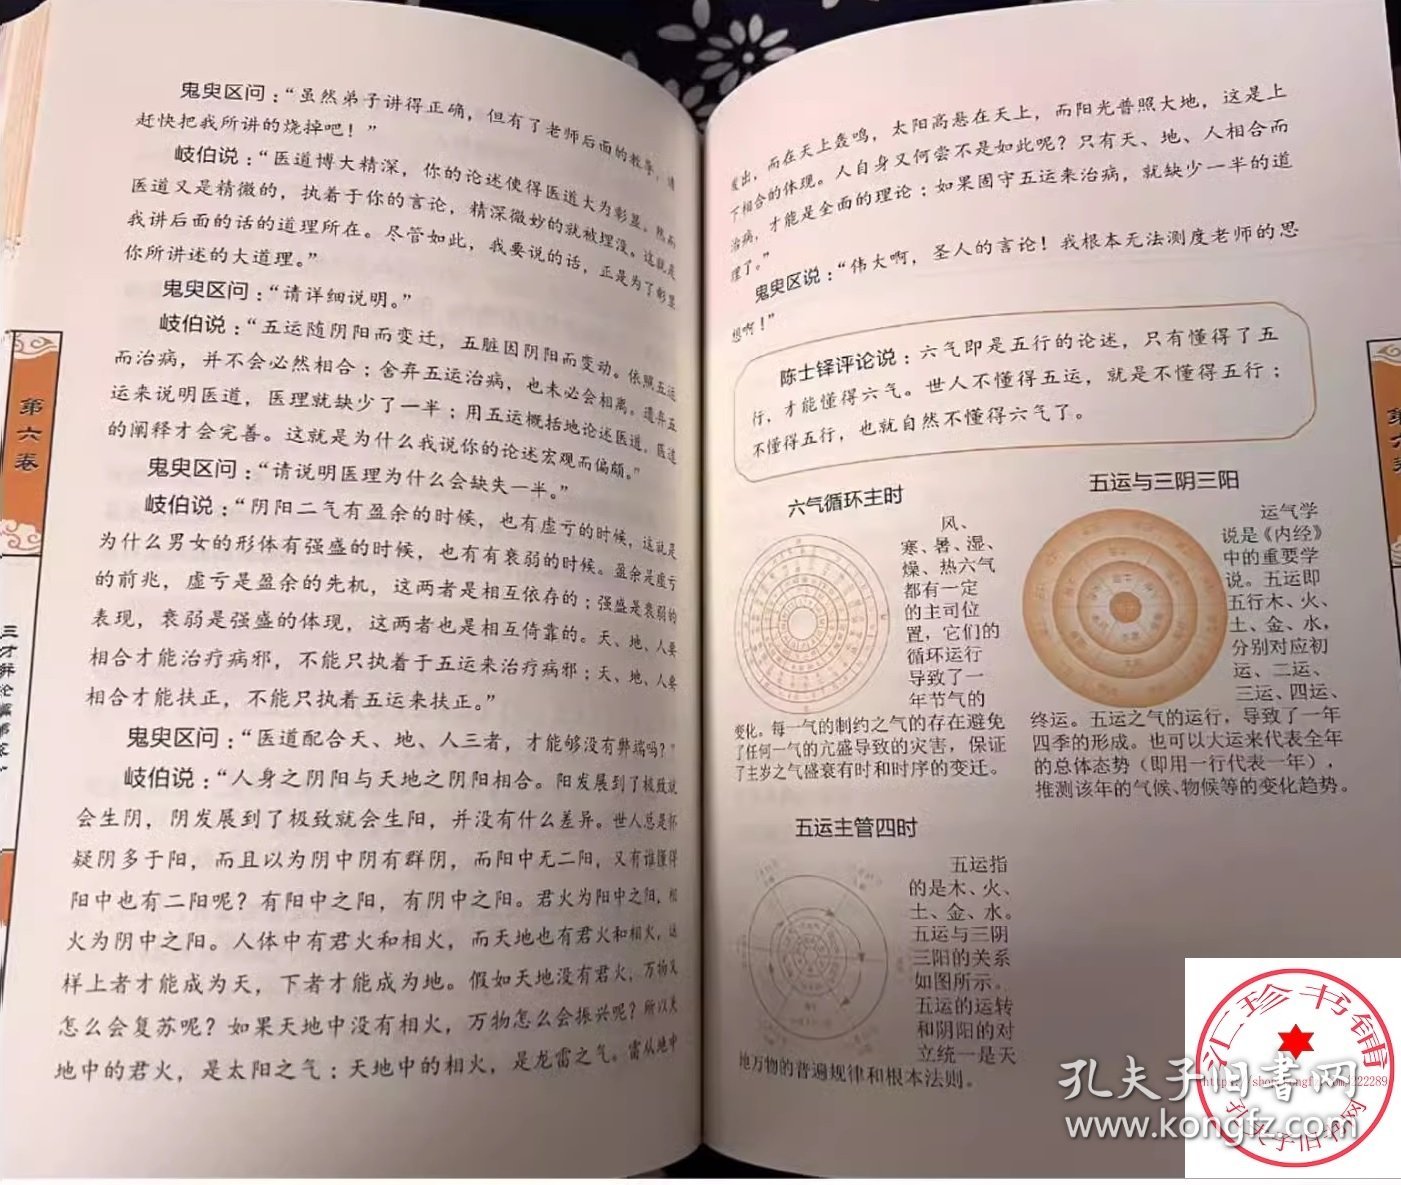 鬼臾区问：“虽然弟子讲得正确，但有了老师后面的教导，请
赶快把我所讲的烧掉吧！”
岐伯说：“医道博大精深，你的论述使得医道大为彰显。然而
医道又是精微的，执着于你的言论，精深微妙的就被埋没。这就是
我讲后面的话的道理所在。尽管如此，我要说的话，正是为了彰显
你所讲述的大道理。”
鬼臾区问：“请详细说明。”
岐伯说：“五运随阴阳而变迁，五脏因阴阳而变动。依照五运
而治病，并不会必然相合；舍弃五运治病，也未必会相离。遗弃五
运来说明医道，医理就缺少了一半；用五运概括地论述医道，医道
的阐释才会完善。这就是为什么我说你的论述宏观而偏颇。”
鬼臾区问：“请说明医理为什么会缺失一半。”
岐伯说：“阴阳二气有盈余的时候，也有虚亏的时候，这就是
为什么男女的形体有强盛的时候，也有有衰弱的时候。盈余是虚亏
的前兆，虚亏是盈余的先机，这两者是相互依存的；强盛是衰弱的
表现，衰弱是强盛的体现，这两者也是相互倚靠的。天、地、人要
相合才能治疗病邪，不能只执着于五运来治疗病邪；天、地、人要
相合才能扶正，不能只执着五运来扶正。”
鬼臾区问：“医道配合天、地、人三者，才能够没有弊端吗？”
岐伯说：“人身之阴阳与天地之阴阳相合。阳发展到了极致就
会生阴，阴发展到了极致就会生阳，并没有什么差异。世人总是怀
疑阴多于阳，而且以为阴中阴有群阴，而阳中无二阳，又有谁懂得
阳中也有二阳呢？有阳中之阳，有阴中之阳。君火为阳中之阳，相
火为阴中之阳。人体中有君火和相火，而天地也有君火和相火，这
样上者才能成为天，下者才能成为地。假如天地没有君火，万物又
怎么会复苏呢？如果天地中没有相火，万物怎么会振兴呢？所以天
地中的君火，是太阳之气；天地中的相火，是龙雷之气。雷从地中
第六卷
发出，而在天上轰鸣，太阳高悬在天上，而阳光普照大地，这是上
下相合的体现。人自身又何尝不是如此呢？只有天、地、人相合而
治病，才能是全面的理论；如果固守五运来治病，就缺少一半的道
理了。”
鬼臾区说：“伟大啊，圣人的言论！我根本无法测度老师的思
想啊！”
陈士铎评论说：六气即是五行的论述，只有懂得了五
行，才能懂得六气。世人不懂得五运，就是不懂得五行；
不懂得五行，也就自然不懂得六气了。
六气循环主时
风、
寒、暑、湿、
燥、热六气
都有一定
的主司位
置，它们的
循环运行
导致了一
年节气的
变化。每一气的制约之气的存在避免
了任何一气的亢盛导致的灾害，保证
了主岁之气盛衰有时和时序的变迁。
五运与三阴三阳
运气学
说是《内经》
中的重要学
说。五运即
五行木、火、
土、金、水，
分别对应初
运、二运、
三运、四运、
终运。五运之气的运行，导致了一年
四季的形成。也可以大运来代表全年
的总体态势（即用一行代表一年），
推测该年的气候、物候等的变化趋势。
五运主管四时
五运指
的是木、火、
土、金、水。
五运与三阴
三阳的关系
如图所示。
五运的运转
和阴阳的对
立统一是天
地万物的普遍规律和根本法则。
孔夫子旧书网
www.kongfz.com
汇珍书铺
孔夫子旧书网